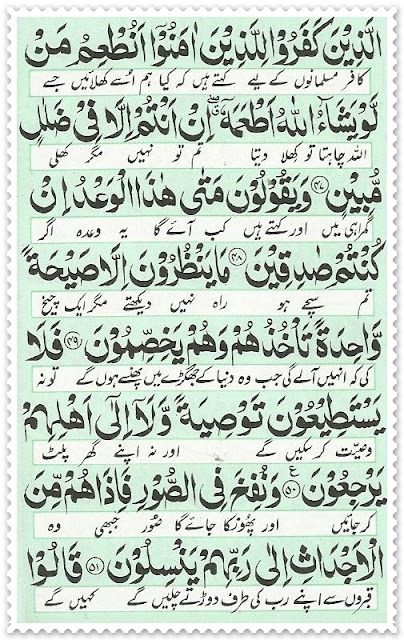 الَّذِيْنَ كَفَرُوْا لِلَّذِيْنَ اٰمَنُوْۤا اَنُطْعِمُ مَنْ
کافر مسلمانوں کے لیے کہتے ہیں کہ کیا ہم اُسے کھلائیں جسے
لَّوْ يَشَآءُ اللّٰهُ اَطْعَمَهٗۤ ۖۗ اِنْ اَنْتُمْ اِلَّا فِيْ ضَلٰلٍ
اللہ چاہتا تو کھلا دیتا تم تو نہیں مگر کھلی
مُّبِيْنٍ ۝۴۷ وَيَقُوْلُوْنَ مَتٰى هٰذَا الْوَعْدُ اِنْ
گمراہی میں اور کہتے ہیں کب آئے گا یہ وعدہ اگر
كُنْتُمْ صٰدِقِيْنَ ۝۴۸ مَا يَنْظُرُوْنَ اِلَّا صَيْحَةً
تم سچے ہو راہ نہیں دیکھتے مگر ایک چیخ
وَّاحِدَةً تَاْخُذُهُمْ وَهُمْ يَخِصِّمُوْنَ ۝۴۹ فَلَا
کی کہ انہیں آلے گی جب وہ دنیا کے جھگڑے میں پھنسے ہوں گے تو نہ
يَسْتَطِيْعُوْنَ تَوْصِيَةً وَّلَاۤ اِلٰۤى اَهْلِهِمْ
وصیّت کر سکیں گے اور نہ اپنے گھر پلٹ
يَرْجِعُوْنَ ۝۵۰ ع وَنُفِخَ فِي الصُّوْرِ فَاِذَا هُمْ مِّنَ
کر جائیں اور پھونکا جائے گا صُور جبھی وہ
الْاَجْدَاثِ اِلٰى رَبِّهِمْ يَنْسِلُوْنَ ۝۵۱ قَالُوْا
قبروں سے اپنے رب کی طرف دوڑتے چلیں گے کہیں گے